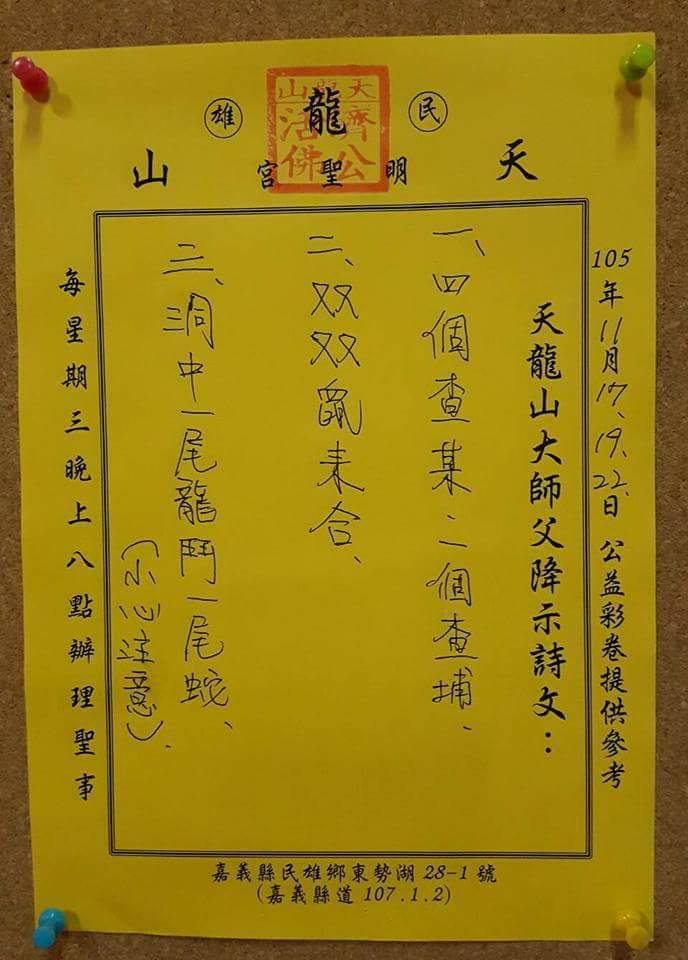 民雄
天龍山
明聖宮
天龍山
濟公
活佛
105年11月17、19、22、日 公益彩卷提供參考
天龍山大師父降示詩文：
一、四個查某二個查捕、
二、双双鼠来合、
三、洞中一尾龍鬥一尾蛇、
(小心注意).
每星期三晚上八點辦理聖事
嘉義縣民雄鄉東勢湖 28-1 號
(嘉義縣道 107.1.2)